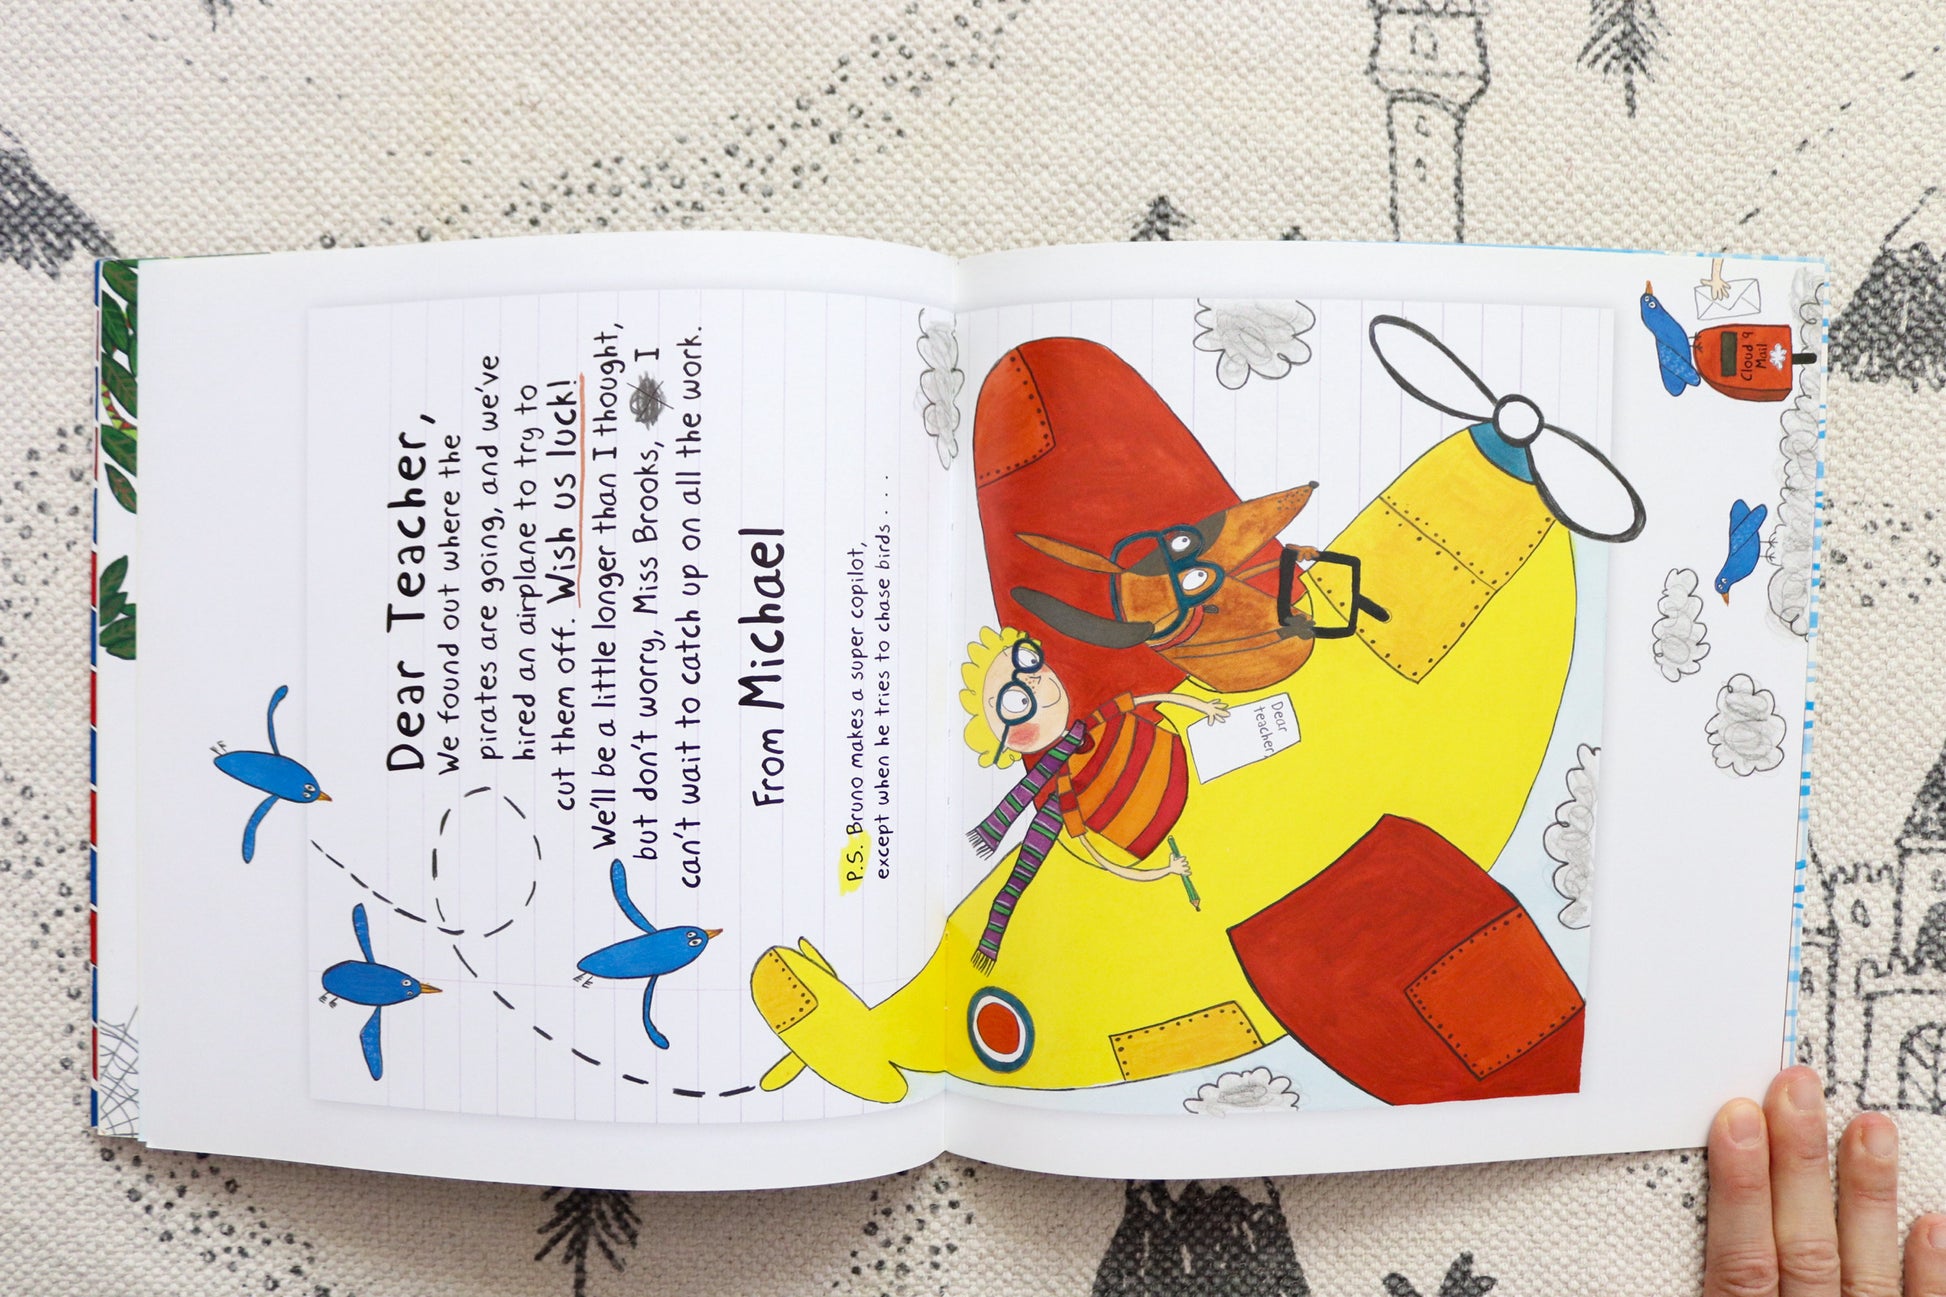 Dear Teacher,
We found out where the
pirates are going, and we've
hired an airplane to try to
cut them off. Wish us luck!
We'll be a little longer than I thought,
but don't worry, Miss Brooks, I
can't wait to catch up on all the work.
From Michael
P.S. Bruno makes a super copilot,
except when he tries to chase birds . . .
Dear
teacher
Cloud 9
Mail